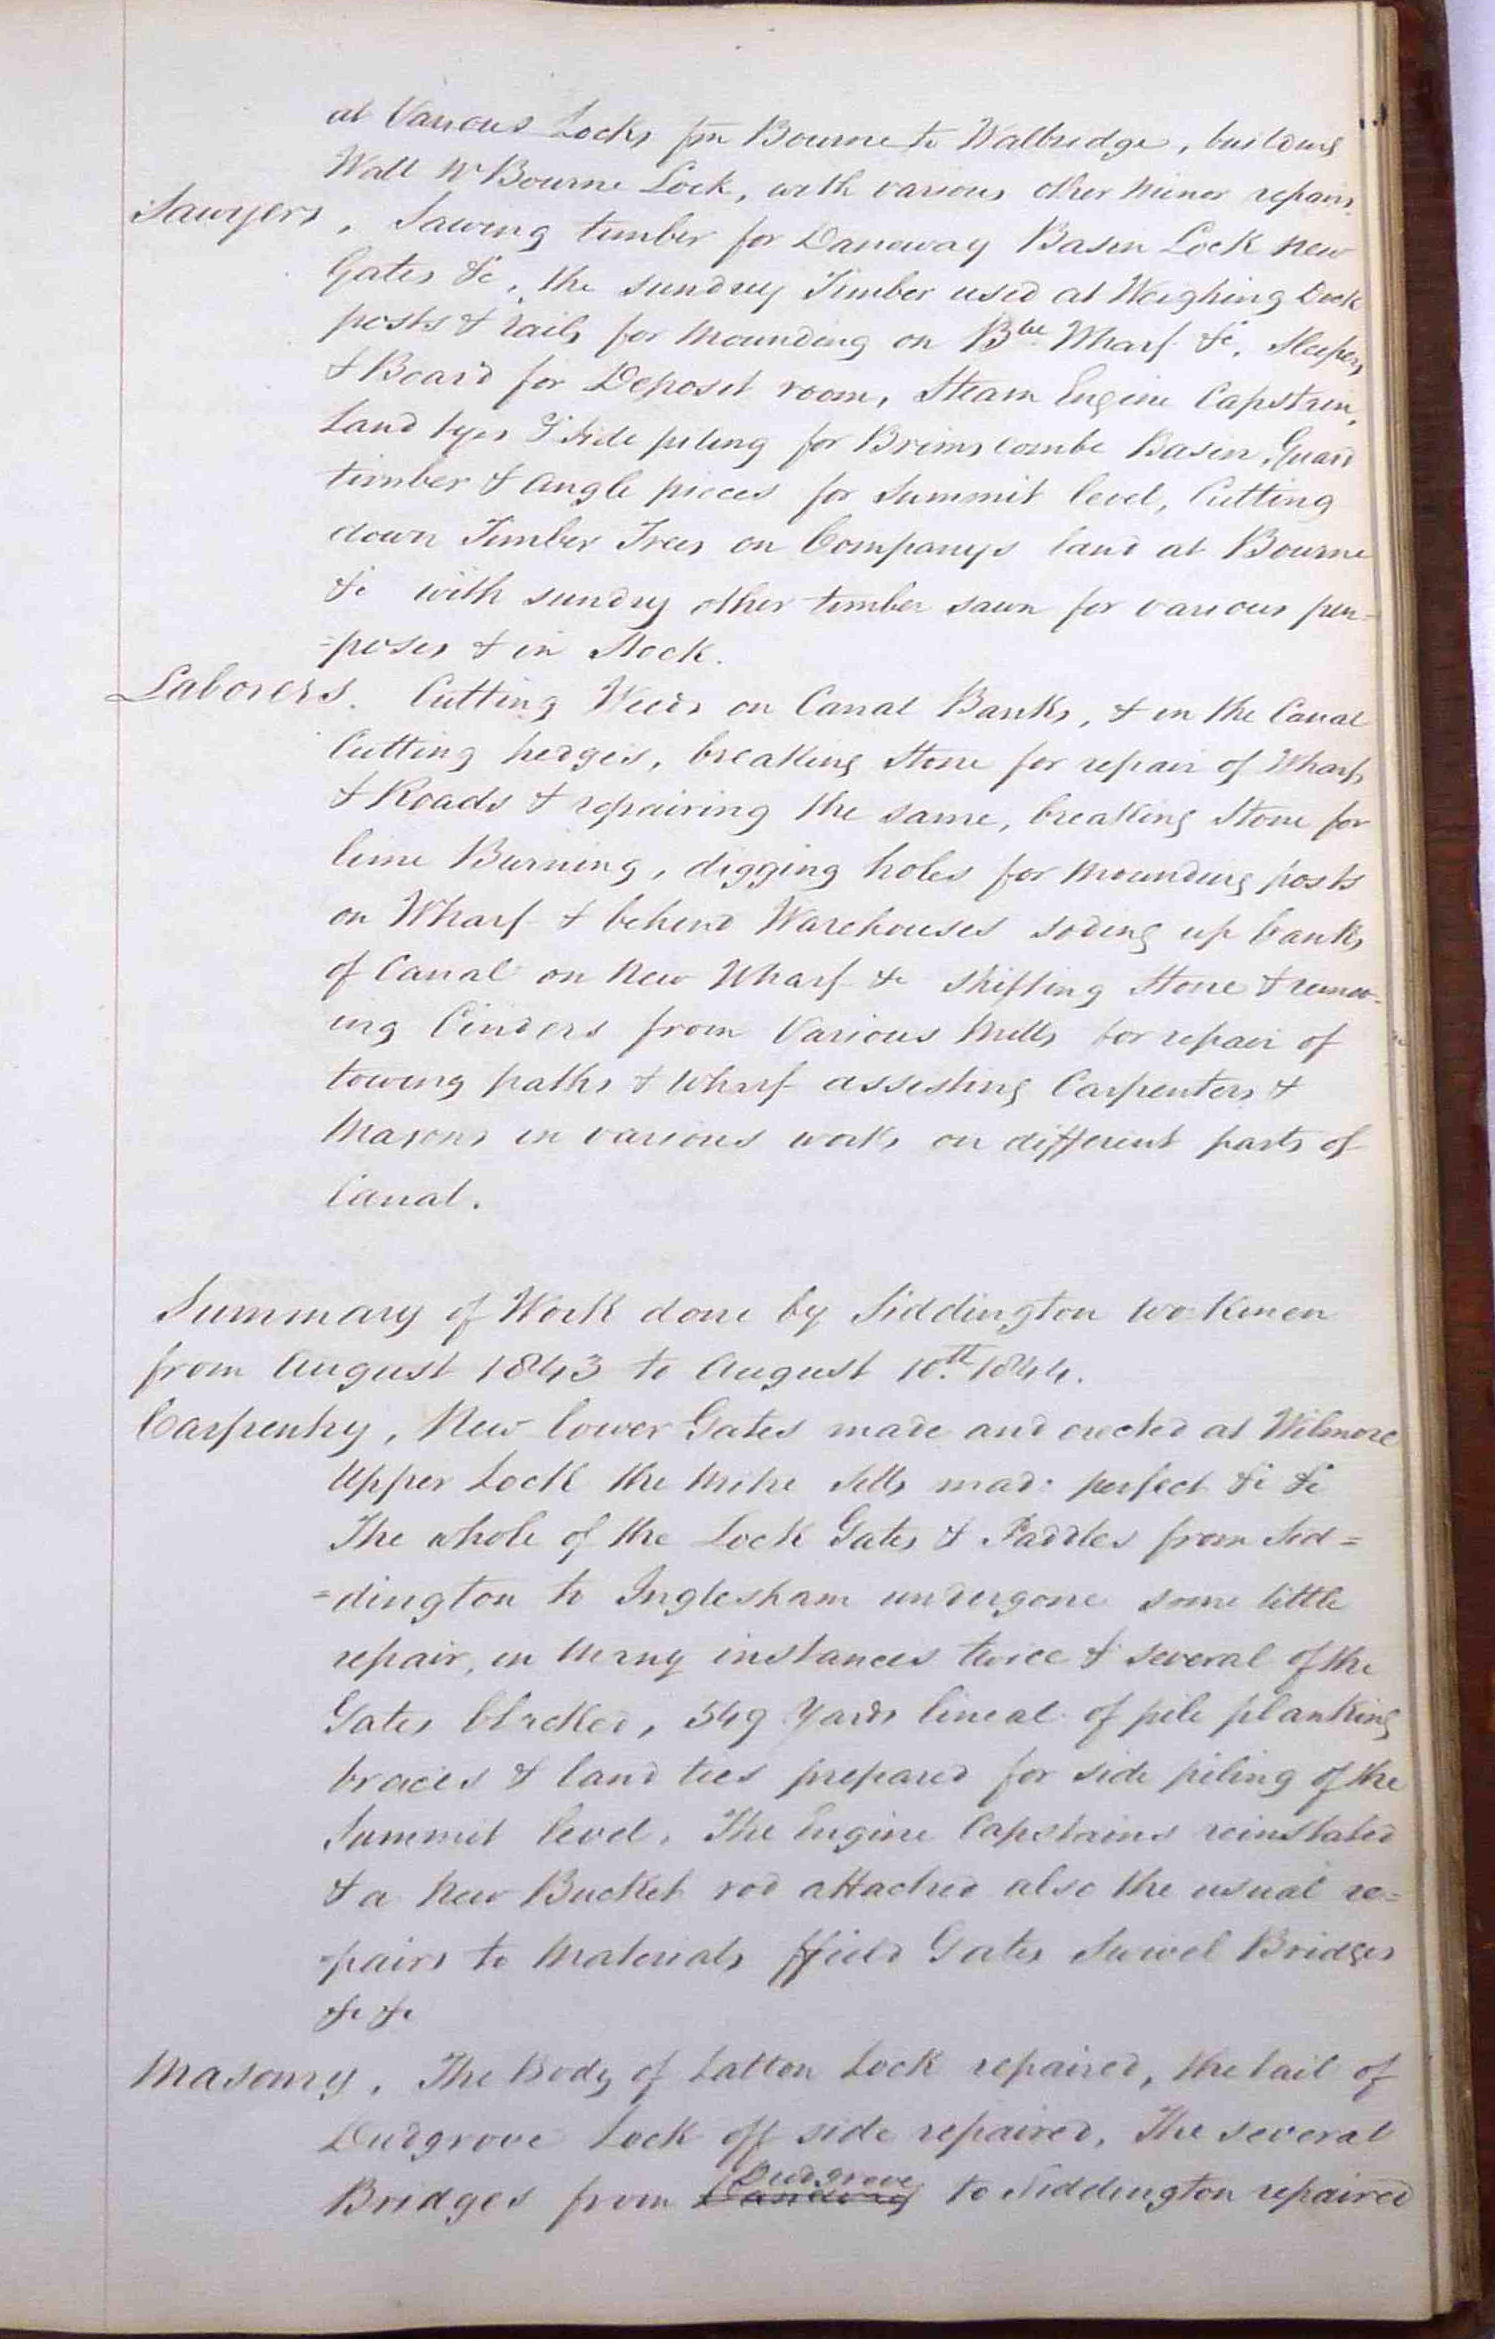 at Various Locks fm Bourne to Walbridge, building
Wall Nr Bourne Lock, with various other Minor repairs.
Sawyers, Sawing timber for Daneway Basin Lock New
Gates &c, the sundry Timber used at Weighing Dock
posts & rails for Mounding on Bbe Wharf &c, Sleepers
& Board for Deposit room, Steam Engine Capstan,
Land tyes & Side piling for Brimscombe Basin, Guard
timber & Angle pieces for Summit level, Cutting
down Timber Trees on Companys land at Bourne
&c with sundry other timber sawn for various pur-
-poses & in Stock.
Laborers. Cutting Weeds on Canal Banks, & in the Canal
Cutting hedges, breaking Stone for repair of Wharfs
& Roads & repairing the same, breaking Stone for
lime Burning, digging holes for Mounding posts
on Wharf & behind Warehouses soding up banks
of Canal on New Wharf &c Shifting Stone & remov-
ing Cinders from Various Mills for repair of
towing paths & Wharf assisting Carpenters &
Masons in various works on different parts of
Canal.
Summary of Work done by Siddington Workmen
from August 1843 to August 10th 1844.
Carpentry, New lower Gates made and erected at Wilmore
Upper Lock the Mitre Sills made perfect &c &c
The whole of the Lock Gates & Paddles from Sid=
=dington to Inglesham undergone some little
repair, in Many instances twice & several of the
Gates blacked, 549 Yards lineal of pile planking
braces & land ties prepared for side piling of the
Summit level. The Engine Capstains reinstated
& a New Bucket rod attached also the usual re=
-pairs to Materials ffield Gates Swivel Bridges
&c &c
Masonry, The Body of Latton Lock repaired, the tail of
Dudgrove Lock off side repaired, The several
Bridges from Dudgrove to Siddington repaired